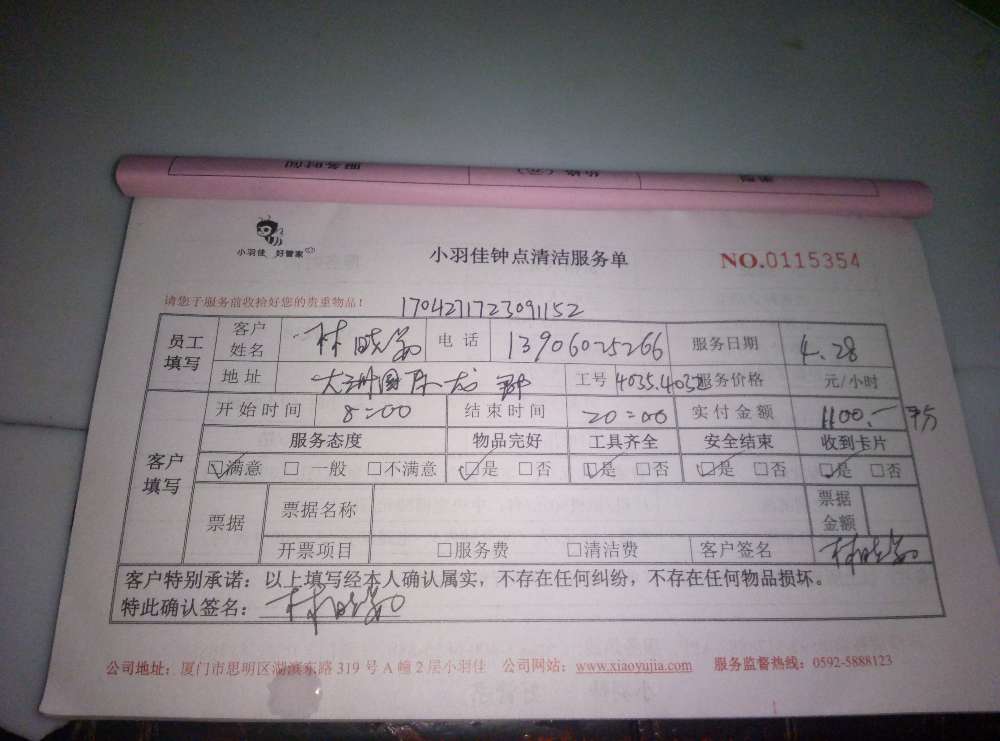 小羽佳 好管家
小羽佳钟点清洁服务单
NO.0115354
请您于服务前收拾好您的贵重物品！
1704271723091152
员工填写 客户姓名 林晓 电话 13906025266 服务日期 4.28
地址 大洲国 龙 工号 4035.4032 服务价格 元/小时
客户填写 开始时间 8:00 结束时间 20:00 实付金额 1100.-
服务态度 物品完好 工具齐全 安全结束 收到卡片
☑满意 □一般 □不满意 ☑是 □否 ☑是 □否 ☑是 □否 ☑是 □否
票据 票据名称 票据金额
开票项目 □服务费 □清洁费 客户签名 林晓
客户特别承诺：以上填写经本人确认属实，不存在任何纠纷，不存在任何物品损坏。
特此确认签名：林晓
公司地址：厦门市思明区湖滨东路 319 号 A 幢 2 层小羽佳 公司网站：www.xiaoyujia.com 服务监督热线：0592-5888123